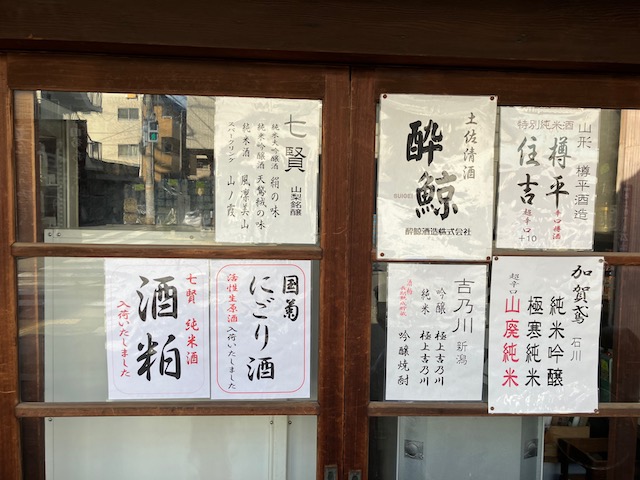 七賢 山梨銘醸
純米大吟醸酒 絹の味
純米吟醸酒 天鵞絨の味
純米酒 風凛美山
スパークリング 山ノ霞
土佐清酒
酔鯨
SUIGEI
酔鯨酒造株式会社
山形 樽平酒造
特別純米酒
樽平 辛口樽酒
住吉 超辛口 +10
七賢 純米酒
酒粕
入荷いたしました
国菊
にごり酒
活性生原酒 入荷いたしました
吉乃川 新潟
吟醸 極上吉乃川
純米 極上吉乃川
吟醸焼酎
加賀鳶 石川
純米吟醸
極寒純米
超辛口
山廃純米